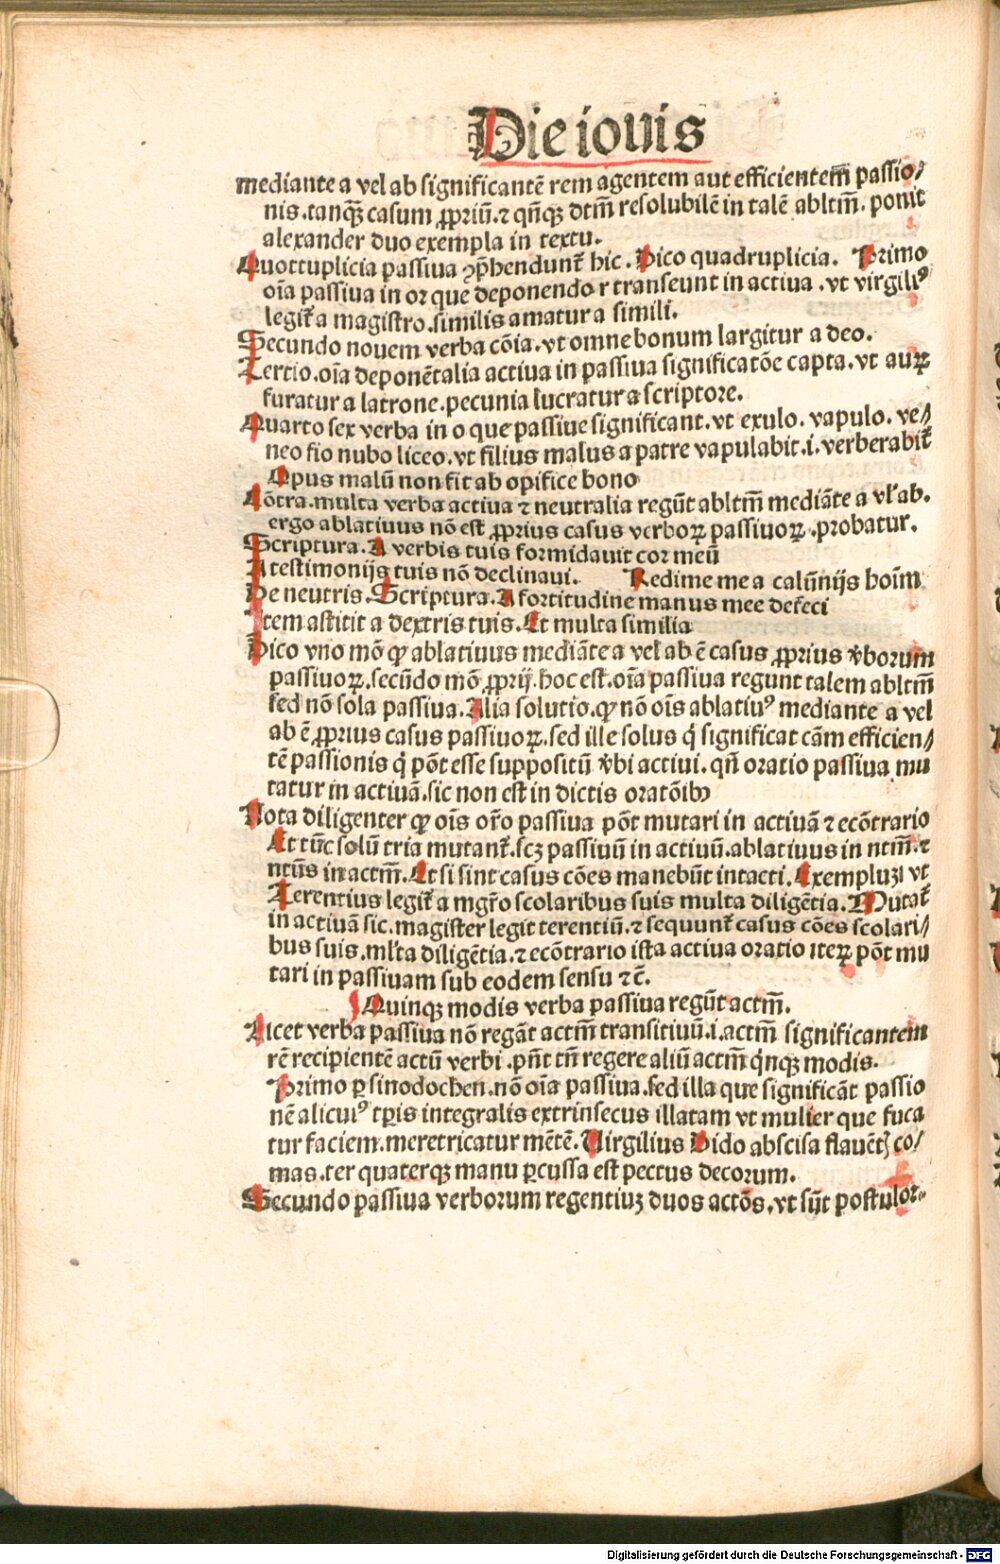 Die iouis
mediante a vel ab significantē rem agentem aut efficientem̄ passio⸗
nis.tanq̄ꝫ casum ꝓpriū.⁊ qn̄qꝫ dtm̄ resolubilē in talē abltm̄. ponit
alexander duo exempla in textu.
Quottuplicia passiua ꝯp̄hendunt̄ hic. Dico quadruplicia. Primo
oīa passiua in or que deponendo r transeunt in actiua .vt virgiliꝰ
legit̄ a magistro.similis amatur a simili.
Secundo nouem verba cōia.vt omne bonum largitur a deo.
Tertio.oīa deponētalia actiua in passiua significatōe capta.vt auꝝ
furatur a latrone.pecunia lucratur a scriptore.
Quarto sex verba in o que passiue significant.vt exulo. vapulo. ve⸗
neo fio nubo liceo.vt filius malus a patre vapulabit.i.verberabit̄
Opus malū non fit ab opifice bono
Cōtra.multa verba actiua ⁊ neutralia regūt abltm̄ mediāte a vl' ab.
ergo ablatiuus nō est ꝓprius casus verboꝝ passiuoꝝ .probatur.
Scriptura. A verbis tuis formidauit cor meū
A testimonijs tuis nō declinaui. Redime me a calūnijs hoīm
De neutris.Scriptura.A fortitudine manus mee defeci
Item astitit a dextris tuis.Et multa similia
Dico vno mō ꝙ ablatiuus mediāte a vel ab ē casus ꝓprius v̄borum
passiuoꝝ.secūdo mō ꝓprij.hoc est.oīa passiua regunt talem abltm̄
sed nō sola passiua.Alia solutio.ꝙ nō oīs ablatiuꝰ mediante a vel
ab ē ꝓprius casus passiuoꝝ.sed ille solus q̇ significat cām efficien⸗
tē passionis q̇ pōt esse suppositū v̄bi actiui.qn̄ oratio passiua mu
tatur in actiuā.sic non est in dictis oratōibꝰ
Nota diligenter ꝙ oīs or̄o passiua pōt mutari in actiuā ⁊ ecōtrario
Et tūc solū tria mutant̄.scꝫ passiuū in actiuū.ablatiuus in ntm̄.⁊
ntūs in actm̄.Et si sint casus cōes manebūt intacti.Exempluꝫ vt
Terentius legit̄ a mgr̄o scolaribus suis multa diligētia.Mutat̄
in actiuā sic.magister legit terentiū.⁊ sequunt̄ casus cōes scolari⸗
bus suis.ml'ta diligētia.⁊ ecōtrario ista actiua oratio iteꝝ pōt mu
tari in passiuam sub eodem sensu ⁊ c̄.
Quinqꝫ modis verba passiua regūt actm̄.
Licet verba passiua nō regāt actm̄ transitiuū.i.actm̄ significantem
rē recipientē actū verbi .pn̄t tn̄ regere aliū actm̄ q̇nqꝫ modis.
Primo ꝑ sinodochen.nō oīa passiua.sed illa que significāt passio
nē alicuiꝰ tꝑis integralis extrinsecus illatam vt mulier que fuca
tur faciem.meretricatur mētē.Virgilius Dido abscisa flauētꝭ co⸗
mas.ter quaterqꝫ manu ꝑcussa est pectus decorum.
Secundo passiua verborum regentiuꝫ duos actōs.vt sūt postulor.
Digitalisierung gefördert durch die Deutsche Forschungsgemeinschaft - DFG